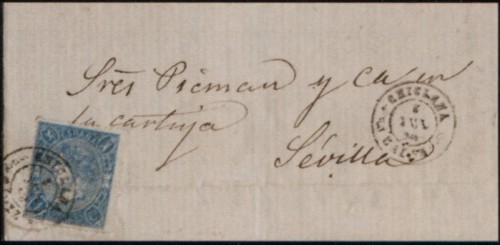 Sres Picman y ca en
la cartuja
Sevilla
CHICLANA
JUL
CHICLANA